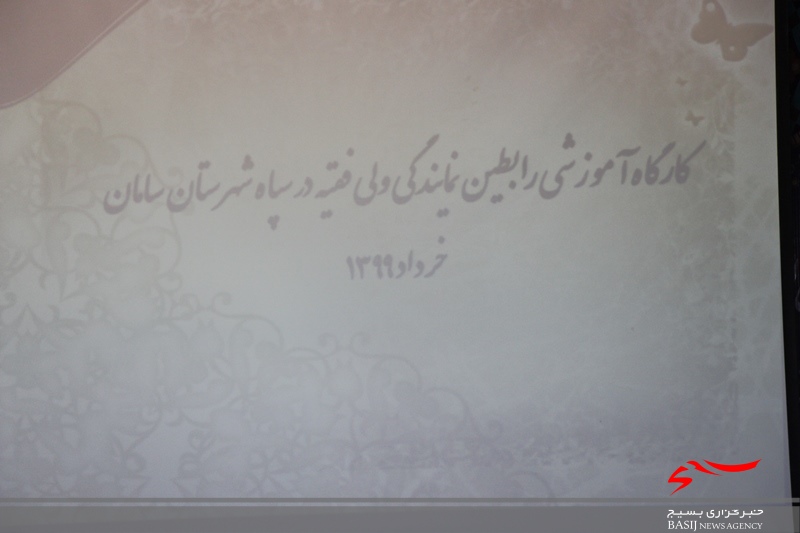 کارگاه آموزشی رابطین نمایندگی ولی فقیه در سپاه شهرستان سامان
خرداد ۱۳۹۹
خبرگزاری بسیج
BASIJ NEWS AGENCY